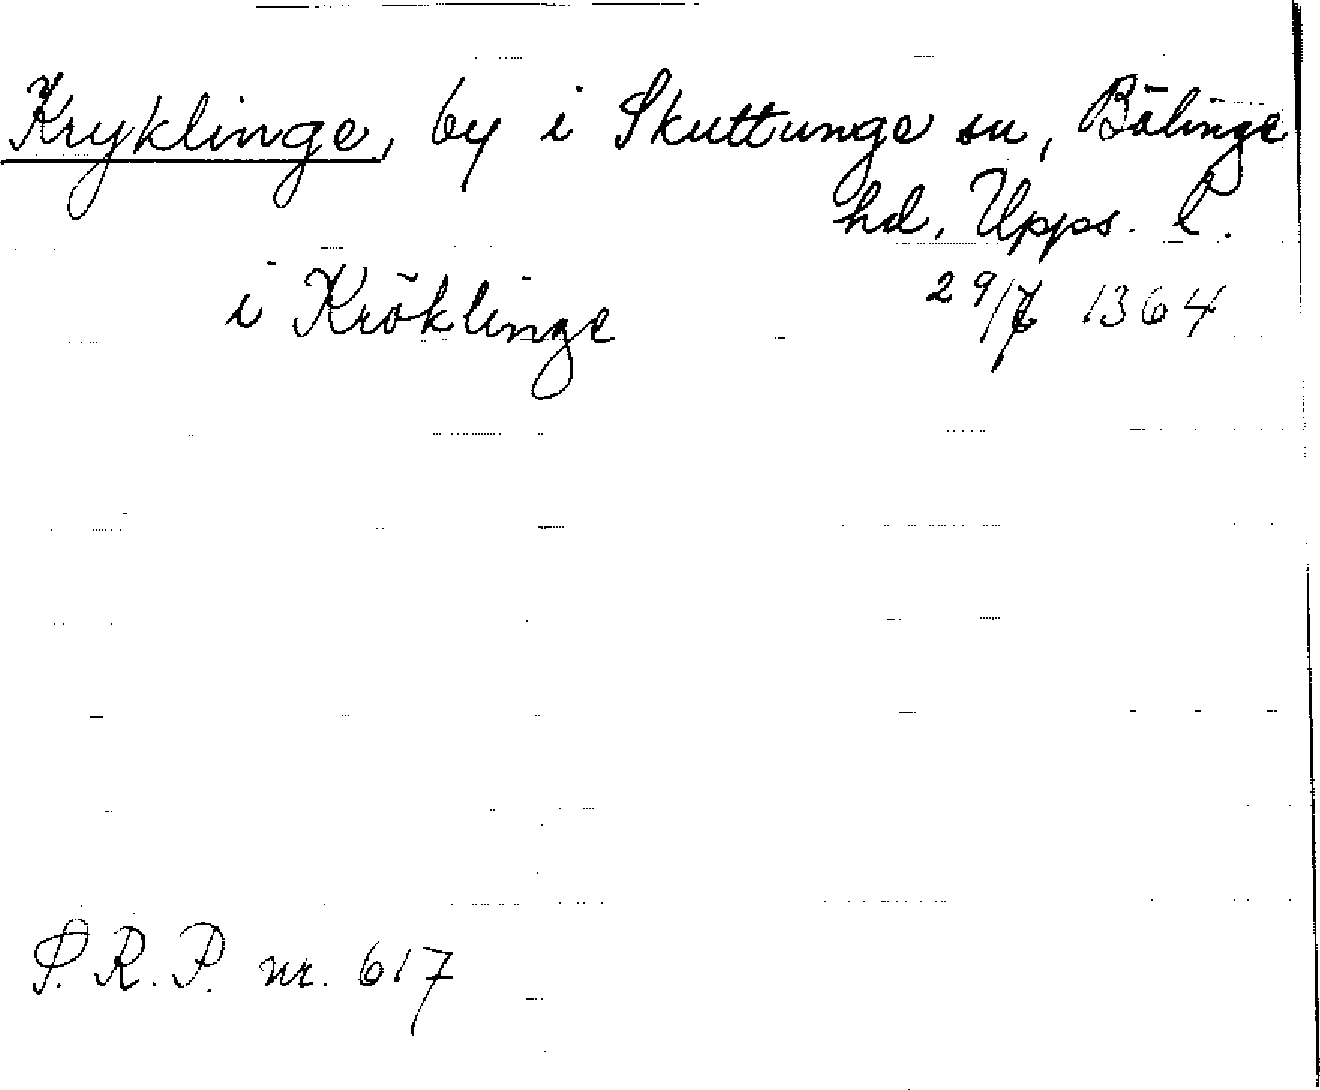 Kryklinge, by i Skuttunge sn, Bälinge
hd, Upps. l.
i Kröklinge 29/7 1364
S. R. P. nr. 617